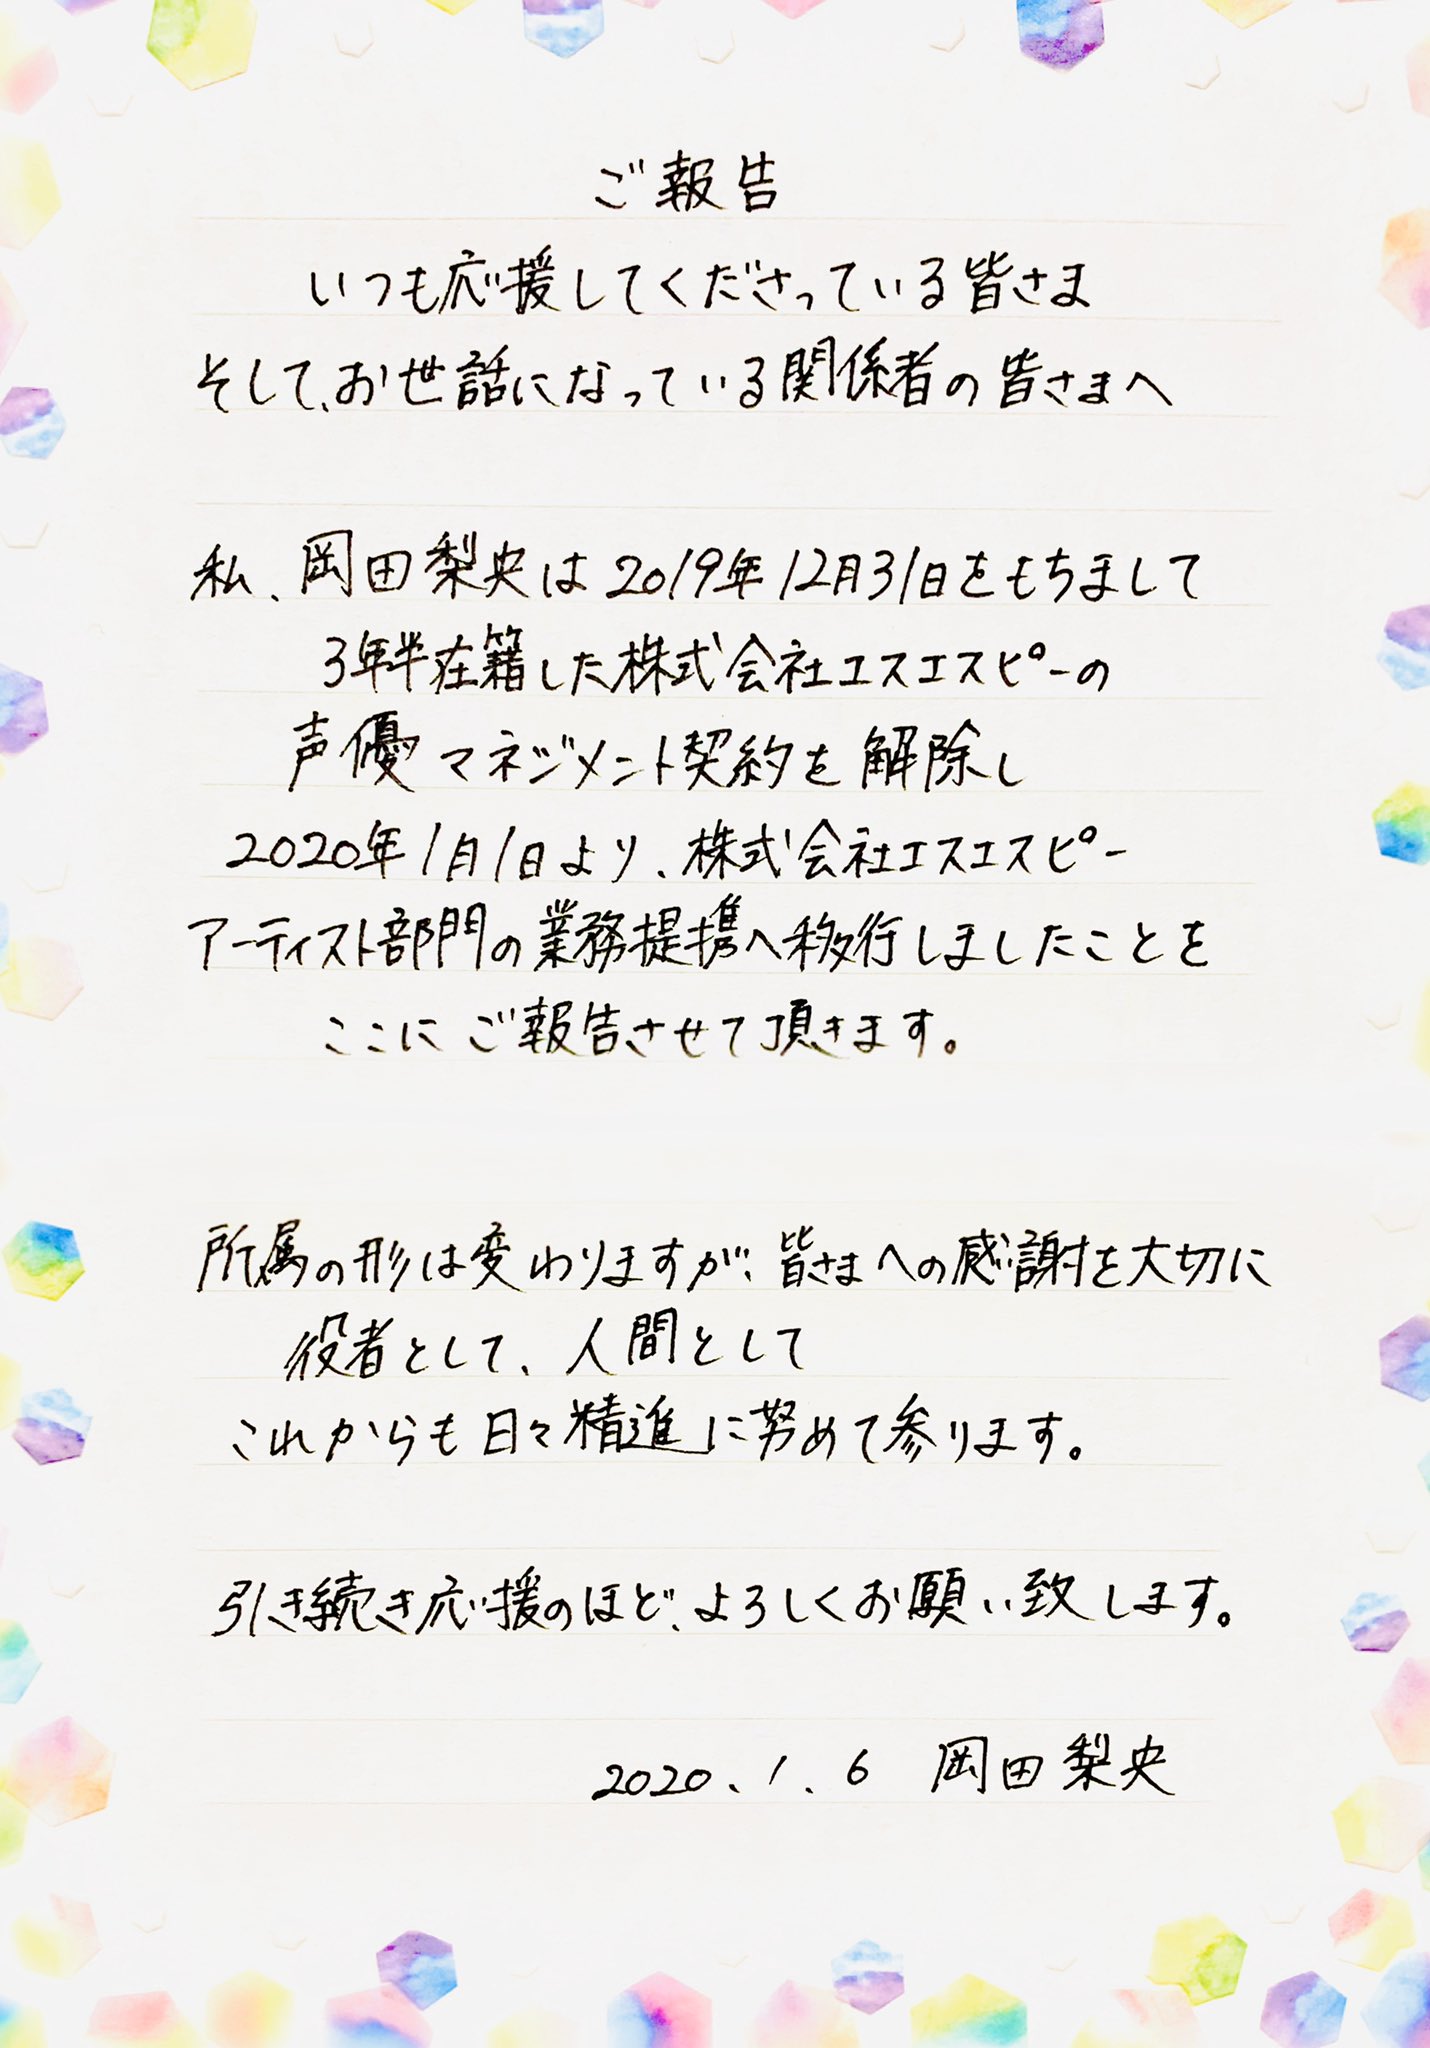 ご報告
いつも応援してくださっている皆さま
そして、お世話になっている関係者の皆さまへ
私、岡田梨央は2019年12月31日をもちまして
3年半在籍した株式会社エスエスピーの
声優マネジメント契約を解除し
2020年1月1日より、株式会社エスエスピー
アーティスト部門の業務提携へ移行しましたことを
ここにご報告させて頂きます。
所属の形は変わりますが、皆さまへの感謝を大切に
役者として、人間として
これからも日々精進に努めて参ります。
引き続き応援のほど、よろしくお願い致します。
2020.1.6 岡田梨央